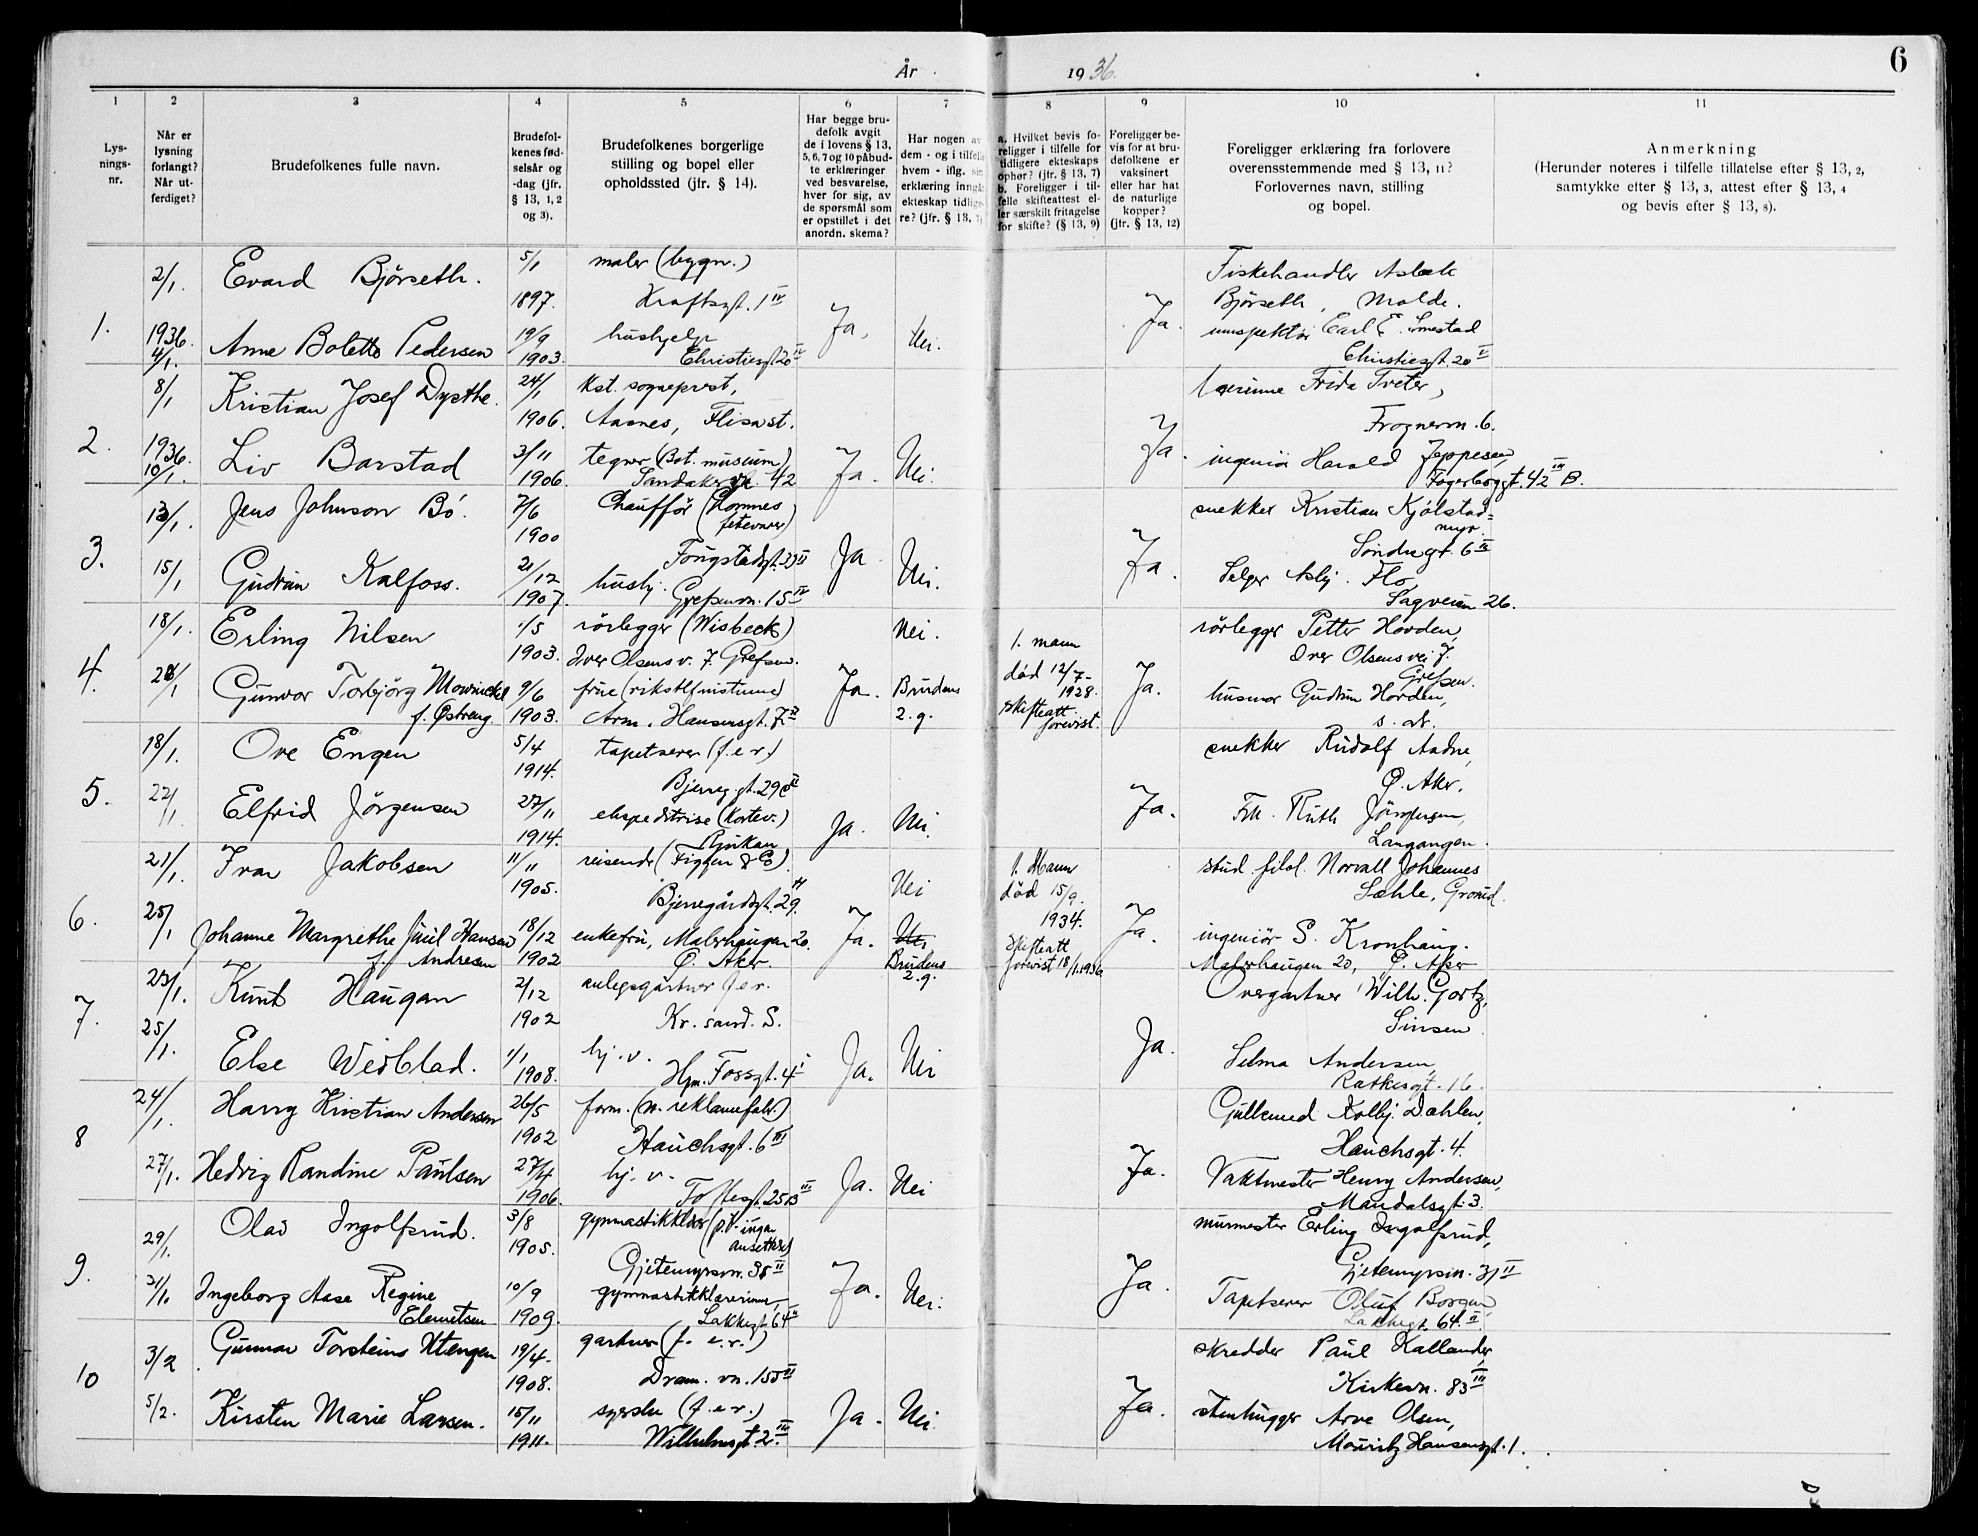 År 1936.
6
1 2 3 4 5 6 7 8 9 10 11
Lys-
nings-
nr.
Når er
lysning
forlangt?
Når ut-
ferdiget?
Brudefolkenes fulle navn.
Brudefol-
kenes fød-
selsår og
-dag (jfr.
§ 13, 1, 2
og 3).
Brudefolkenes borgerlige
stilling og bopel eller
opholdssted (jfr. § 14).
Har begge bru-
defolk avgit
de i lovens § 13,
5, 6, 7 og 10 påbud-
te erklæringer
ved besvarelse,
hver for sig, av
de spørsmål som
er opstillet i det
anordn. skema?
Har nogen av
dem - og i tilfelle
hvem - iflg. sin
erklæring inngåt
ekteskap tidlige-
re? (jfr. § 13, 7)
a. Hvilket bevis fo-
religger i tilfelle for
tidligere ekteskaps
ophør? (jfr. § 13, 7)
b. Foreligger i til-
felle skifteattest el-
ler særskilt fritagelse
for skifte? (§ 13, 9)
Foreligger be-
vis for at bru-
defolkene er
vaksinert
eller har hat
de naturlige
kopper?
(jfr. § 13, 12)
Foreligger erklæring fra forlovere
overensstemmende med § 13, 11?
Forlovernes navn, stilling
og bopel.
Anmerkning
(Herunder noteres i tilfelle tillatelse efter § 13, 2,
samtykke efter § 13, 3, attest efter § 13, 4
og bevis efter § 13, 8).
1.
2/1. Evard Bjørseth. 5/1 1897. maler (bygn.)
Kraftsgt. 1 IV
Fiskehandler Aslak
Bjørseth, Molde.
1936 4/1. Anne Bolette Pedersen 19/9 1903. hushjelp
Christiesgt. 20 II
Ja. Nei. Ja.
Carl E. Smestad
Christiesgt. 20 II
2.
8/1 Kristian Josef Dysthe. 24/1 1906. kst. sogneprest,
Aasnes, Flisa st.
Lærerinne Frida Tveter,
Frognervn. 6.
1936. 10/1. Liv Barstad 3/11 1906. tegner (Bot. museum)
Sandakervn. 42
Ja. Nei. Ja.
ingeniør Harald Jeppesen,
Fagerborggt. 42 III B.
3.
13/1. Jens Johnson Bö. 7/6 1900 Chauffør
snekker Kristian Kjölstad=
myr.
Söndregt. 6 III
15/1 Gudrun Kalfoss. 21/12 1907. hushj.
Grefsenvn. 15 IV
Ja Nei. Ja.
Selger Asbj. Flo,
Sagveien 26.
4.
18/1. Erling Nilsen 1/5 1903. rörlegger (Wisbeck)
Iver Olsens v. 7. Grefsen.
Nei.
rörlegger Petter Hovden,
Iver Olsens vei 7.
Grefsen.
Gunvor Torbjörg Mowinckel
f. Østreng. 9/6 1903. frue
Arm. Hansensgt. 7 II
Ja. Brudens
2. g.
1. mann
död 12/7-
1928.
skifteatt.
forevist.
Ja.
husmor Gudrun Hovden,
s. st.
5.
18/1. Ove Engen 5/4 1914. tapetserer (f.e.r.)
snekker Rudolf Aadne,
Ø. Aker.
22/1 Elfrid Jörgensen 27/11 1914. ekspeditrise
Rjukan
Ja. Nei. Ja.
Frk. Ruth Jörgensen,
Langangen.
6.
21/1. Ivar Jakobsen 11/11 1905. reisende
Bjerregårdsgt. 29.
Nei
1. Mann
död 15/9.
1934.
skifteatt
forevist 18/1. 1936
stud. filol. Norvall Johannes
Sæhle, Grorud.
25/1 Johanne Margrethe Juul Hansen
f. Andresen 18/12 1902 enkefru, Malerhaugen 20.
Ø. Aker.
Ja. Nei
Brudens
2. g.
Ja.
ingeniör S. Kronhaug.
Malerhaugen 20, Ø. Aker
7.
23/1. Knut Haugan 2/12 1902 anlegsgärtner f.e.r.
Kr. sand. S.
Overgartner Wilh. Gortz,
Sinsen.
25/1. Else Weiblad. 1/1 1908. hj. v.
Hjm. Fossgt. 4 I
Ja. Nei Ja.
Selma Andersen,
Rathkesgt. 16.
8
24/1. Harry Kristian Andersen 26/5 1902 form. (n. reklamefabr.)
Hauchsgt. 6 III
Gullsmed Kolbj. Dæhlen,
Hauchsgt. 4.
27/1. Hedvig Randine Paulsen 27/4 1906. hj. v.
Toftesgt. 25 B III
Ja. Nei Ja.
Vaktmester Henry Andersen,
Mandalsgt. 3.
9.
29/1. Olav Ingolfsrud. 3/8 1905. gymnastikklærer
Gjetemyrsvn. 35 II
murmester Erling Ingolfsrud,
Gjetemyrsvn. 31 II
31/1. Ingeborg Aase Regine
Clemetsen 10/9 1909. gymnastikklærerinne,
Lakkegt. 64 II
Ja. Nei. Ja.
Tapetserer Oluf Borgen
Lakkegt. 64. II
10
3/2. Gunnar Torsteins Utengen 19/4. 1908. gartner (f. e. r.)
Dram. vn. 155 II
skredder Paul Kallander,
Kirkevn. 83 III
5/2. Kirsten Marie Larsen. 15/11 1911. syerske (f.e.r.)
Wilhelmsgt. 2. III
Ja. Nei. Ja.
stenhugger Arve Olsen,
Mauritz Hansensgt. 1.